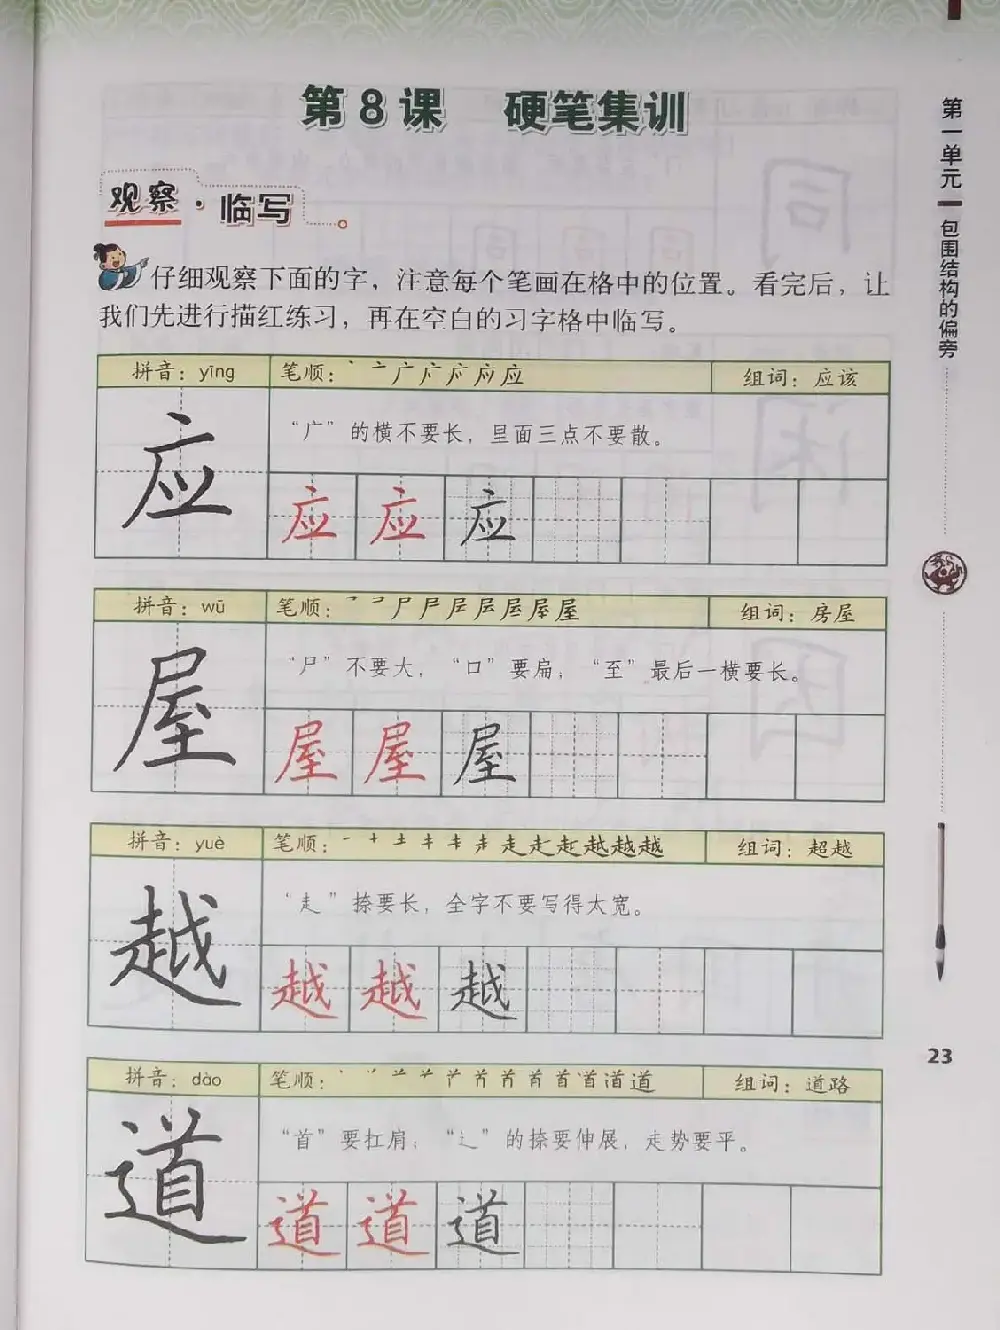 第8课 硬笔集训
观察·临写
仔细观察下面的字，注意每个笔画在格中的位置。看完后，让
我们先进行描红练习，再在空白的习字格中临写。
拼音：yīng 笔顺： 组词：应该
应
“广”的横不要长，里面三点不要散。
应 应 应
拼音：wū 笔顺： 组词：房屋
屋
“尸”不要大，“口”要扁，“至”最后一横要长。
屋 屋 屋
拼音：yuè 笔顺： 组词：超越
越
“走”捺要长，全字不要写得太宽。
越 越 越
拼音：dào 笔顺： 组词：道路
道
“首”要扛肩，“辶”的捺要伸展，走势要平。
道 道 道
第一单元
包围结构的偏旁
23